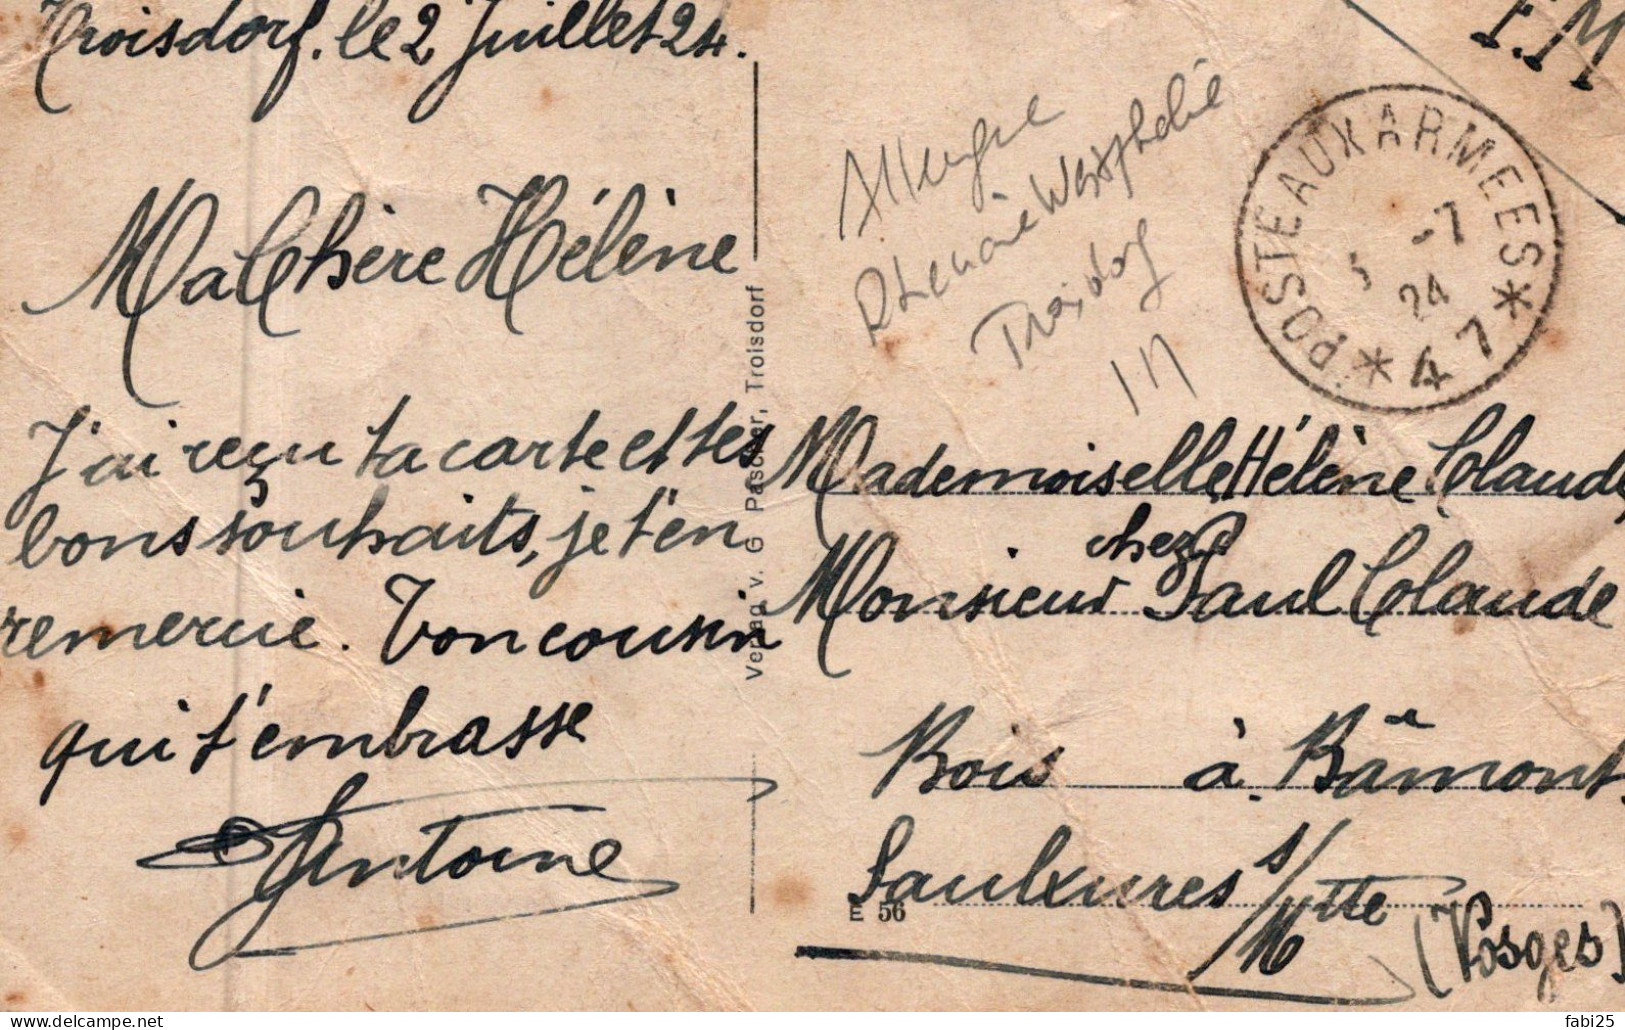 Troisdorf. le 2 Juillet 24.
Ma Chère Hélène
J'ai reçu ta carte et tes
bons souhaits, je t'en
remercie. Ton cousin
qui t'embrasse
Antoine
Verlag v. G Pascher, Troisdorf
F.M
POSTE AUX ARMEES
-7
24
* 47 *
Rhenanie Westphalie
Troisdorf
Mademoiselle Hélène Claude
chez
Monsieur Paul Claude
Bois à Bâmont.
Saulxures s/Mtte
(Vosges)
E 56
fabi25